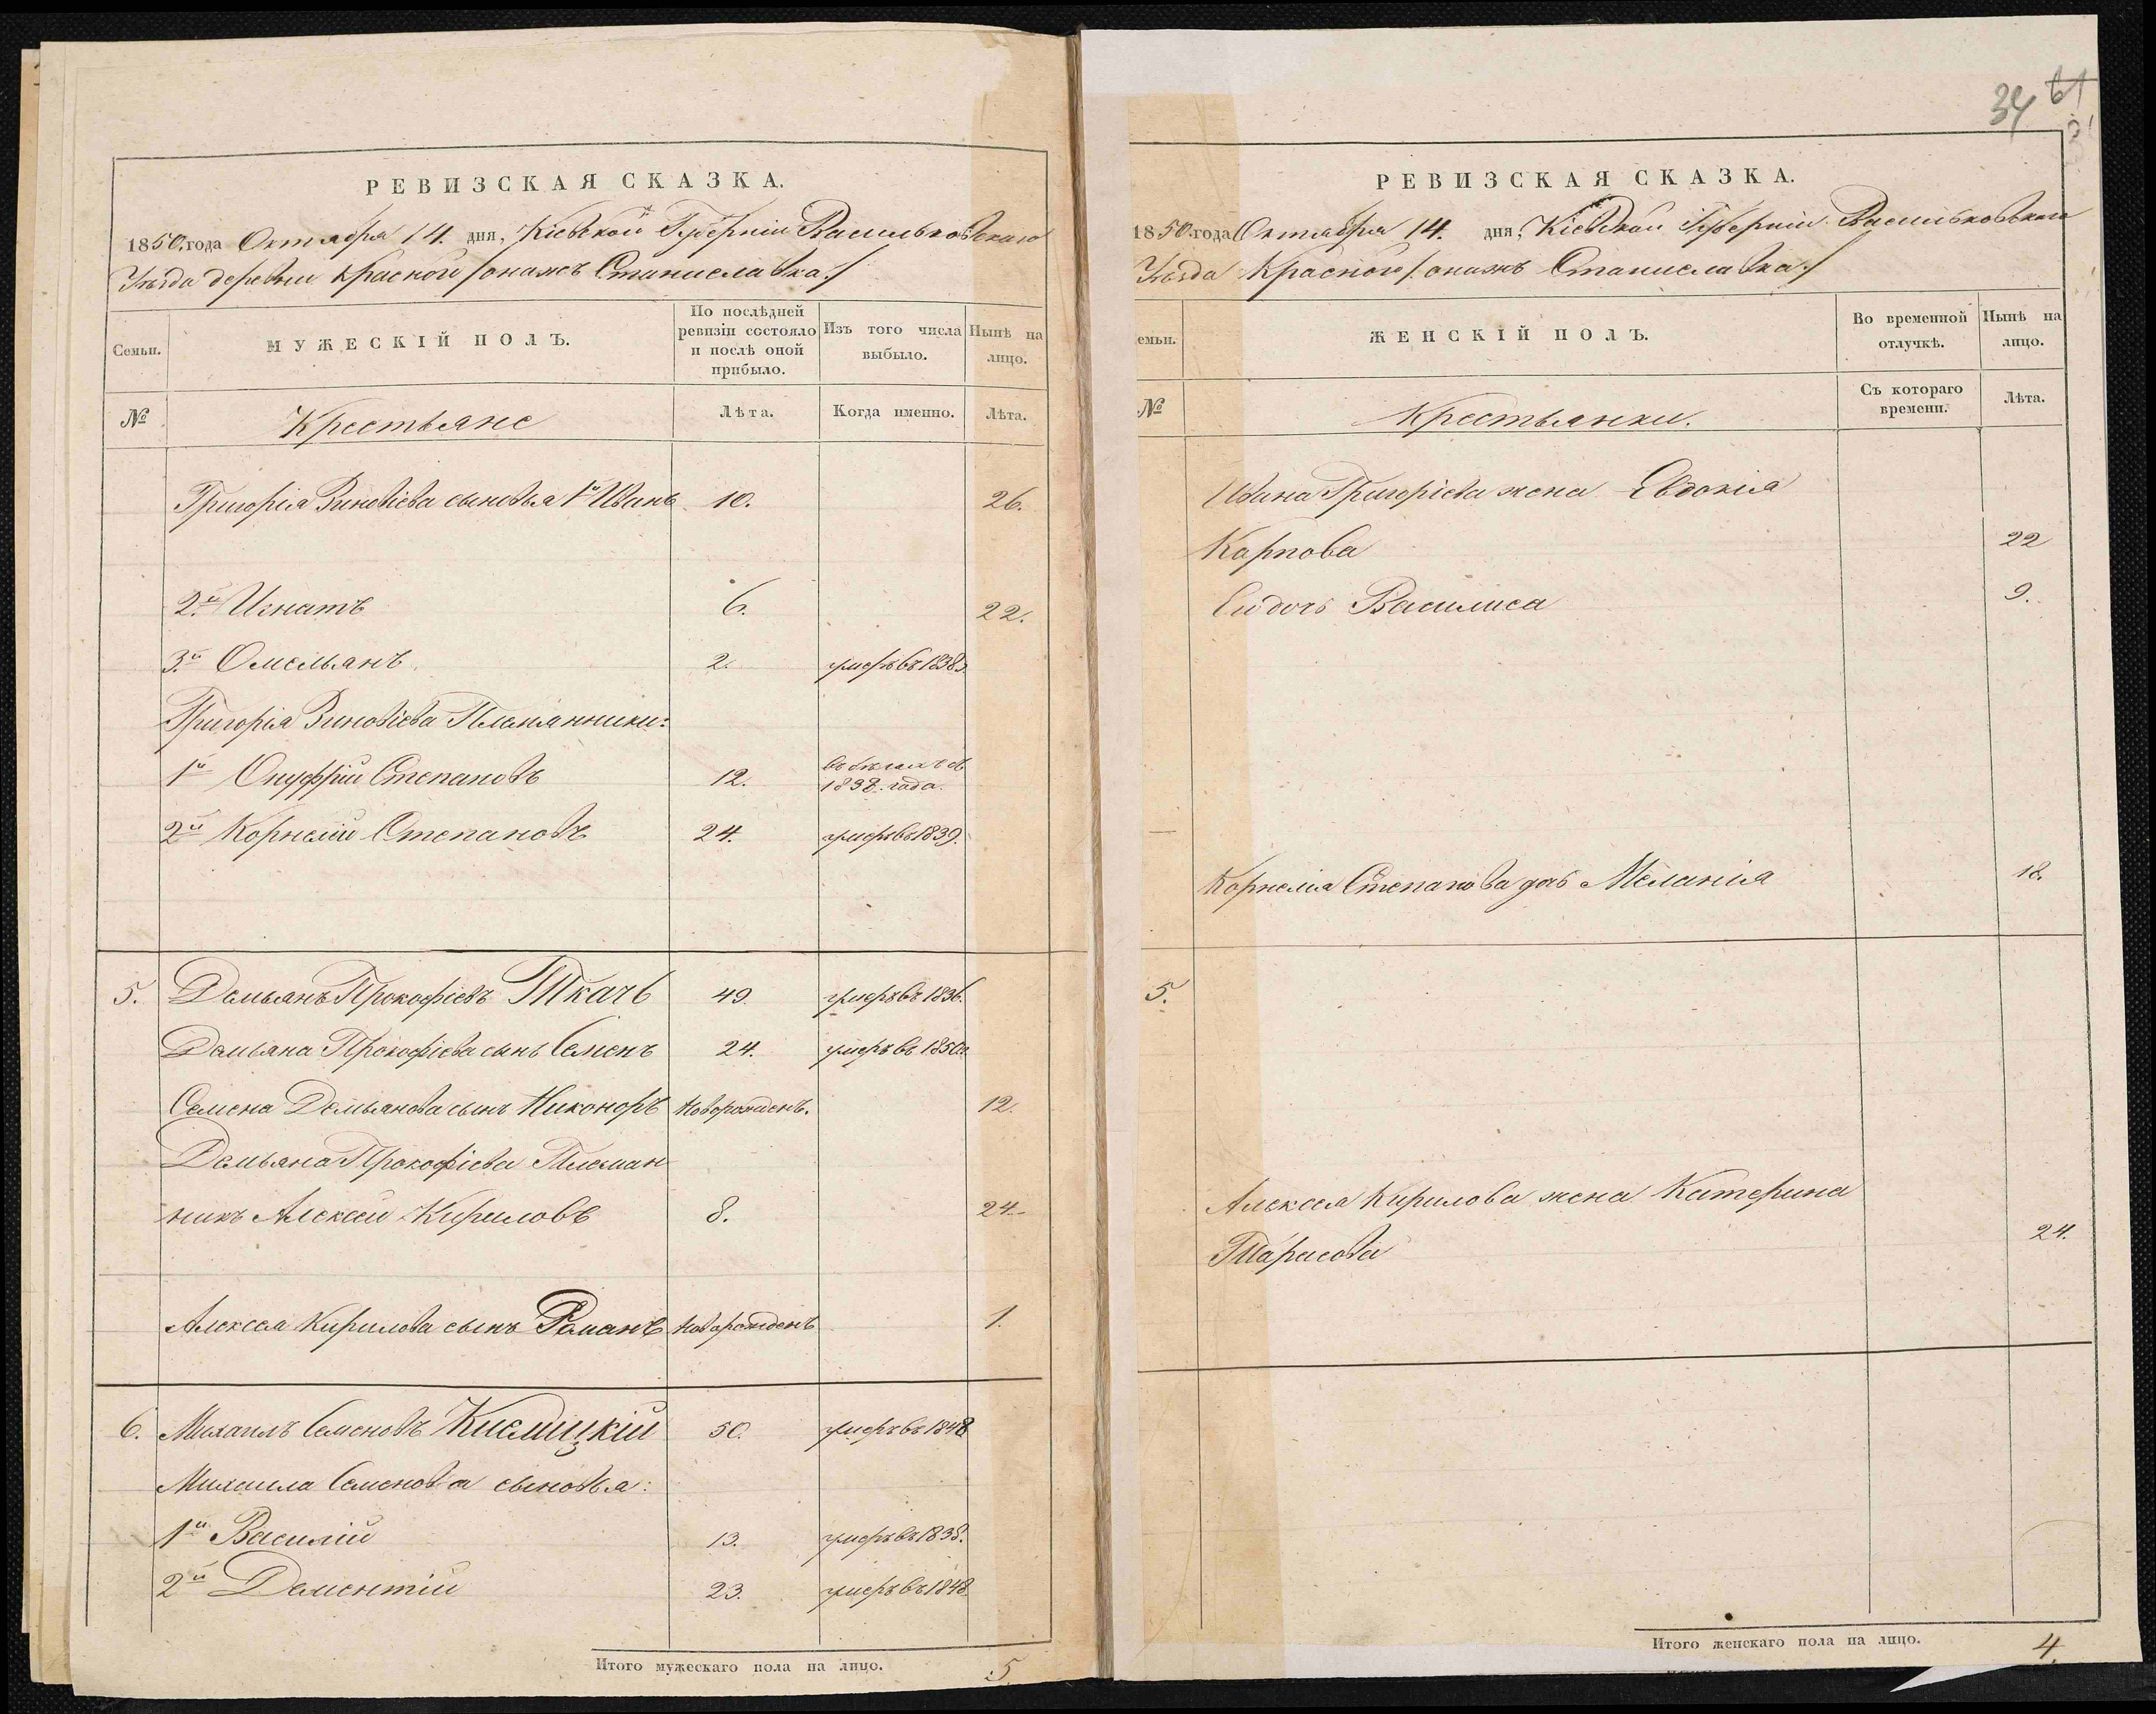 РЕВИЗСКАЯ СКАЗКА.
1850. года Октября 14. дня, Кіевской Губерніи Васильковскаго
Уѣзда деревни Красной / онажъ Станиславка /
Семьи.
МУЖЕСКІЙ ПОЛЪ.
По послѣдней ревизіи состояло и послѣ оной прибыло.
Изъ того числа выбыло.
Нынѣ на лицо.
№
Крестьяне
Лѣта.
Когда именно.
Лѣта.
Григорія Зиновіева сыновья 1й Иванъ 10. 26.
2й Игнатъ 6. 22.
3й Омельянъ. 2. умеръ въ 1838.
Григорія Зиновіева Племянники:
1й Онуфрій Степановъ 12. въ бѣгахъ съ 1838. года.
2й Корнелій Степановъ 24. умеръ въ 1839.
5. Демьянъ Прокофіевъ Ткачь 49. умеръ въ 1836.
Демьяна Прокофіева сынъ Семенъ 24. умеръ въ 1850.
Семена Демьянова сынъ Никоноръ Новорожденъ. 12.
Демьяна Прокофіева Племян
никъ Алексей Кириловъ 8. 24.
Алексея Кирилова сынъ Романъ Новорожденъ 1.
6. Михаилъ Семеновъ 50. умеръ въ 1848
Михаила Семенова сыновья:
1й Василій 13. умеръ въ 1838.
2й Дементій 23. умеръ въ 1848.
Итого мужескаго пола на лицо. 5
34 61
РЕВИЗСКАЯ СКАЗКА.
1850. года Октября 14. дня, Кіевской Губерніи Васильковскаго
Уѣзда Красного / онажъ Станиславка /
емьи.
ЖЕНСКІЙ ПОЛЪ.
Во временной отлучкѣ.
Нынѣ на лицо.
№
Крестьянки.
Съ котораго времени.
Лѣта.
Ивана Григоріева жена Евдокія
Карпова 22
Еи дочь Василиса 9.
Корнелія Степанова дочь Меланія 18.
5.
Алексея Кирилова жена Катерина
Тарасова 24.
Итого женскаго пола на лицо. 4.